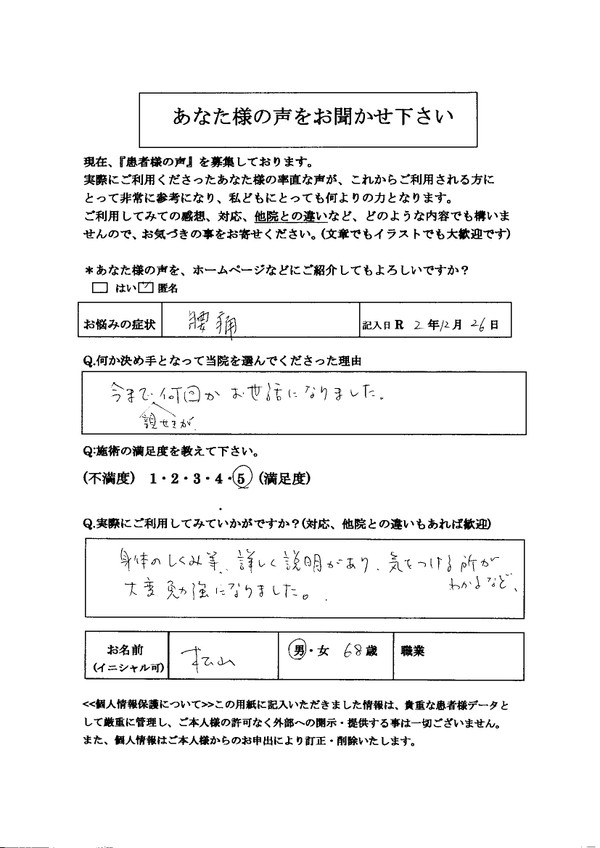 あなた様の声をお聞かせ下さい
現在、『患者様の声』を募集しております。
実際にご利用くださったあなた様の率直な声が、これからご利用される方に
とって非常に参考になり、私どもにとっても何よりの力となります。
ご利用してみての感想、対応、他院との違いなど、どのような内容でも構いま
せんので、お気づきの事をお寄せください。(文章でもイラストでも大歓迎です)
＊あなた様の声を、ホームページなどにご紹介してもよろしいですか？
□ はい ☑ 匿名
お悩みの症状 腰痛 記入日 R 2 年 12 月 26 日
Q.何か決め手となって当院を選んでくださった理由
今まで何回かお世話になりました。
Q:施術の満足度を教えて下さい。
(不満度) 1・2・3・4・5 (満足度)
Q.実際にご利用してみていかがですか？(対応、他院との違いもあれば歓迎)
身体のしくみ等、詳しく説明があり、気をつける所が
わかるなど、
大変勉強になりました。
お名前 松山 男・女 68 歳 職業
(イニシャル可)
<<個人情報保護について>>この用紙に記入いただきました情報は、貴重な患者様データと
して厳重に管理し、ご本人様の許可なく外部への開示・提供する事は一切ございません。
また、個人情報はご本人様からのお申出により訂正・削除いたします。